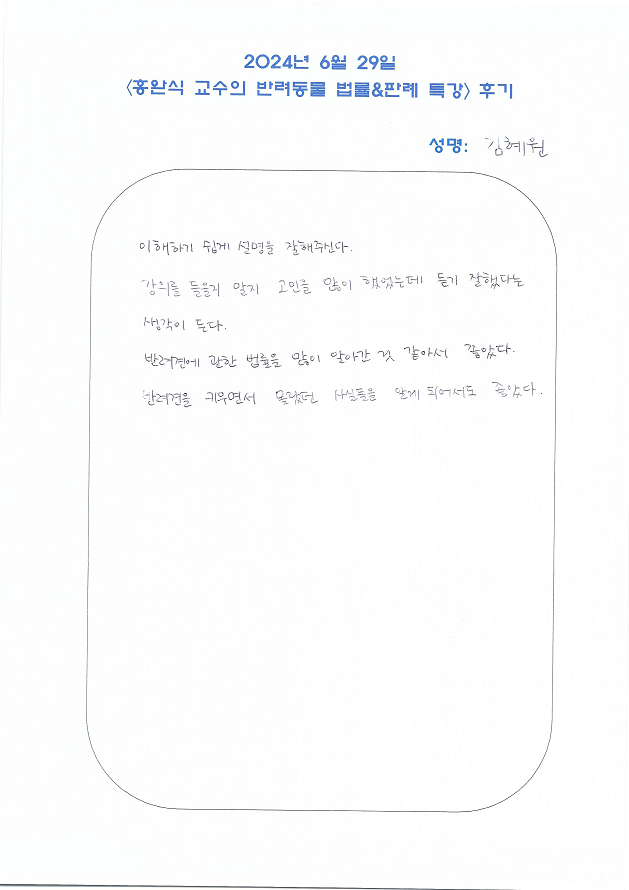 2024년 6월 29일
<홍완식 교수의 반려동물 법률&판례 특강> 후기
성명: 김혜원
이해하기 쉽게 설명을 잘해주신다.
강의를 들을지 말지 고민을 많이 했었는데 듣기 잘했다는
생각이 든다.
반려견에 관한 법률을 많이 알아간 것 같아서 좋았다.
반려견을 키우면서 몰랐던 사실들을 알게 되어서도 좋았다.